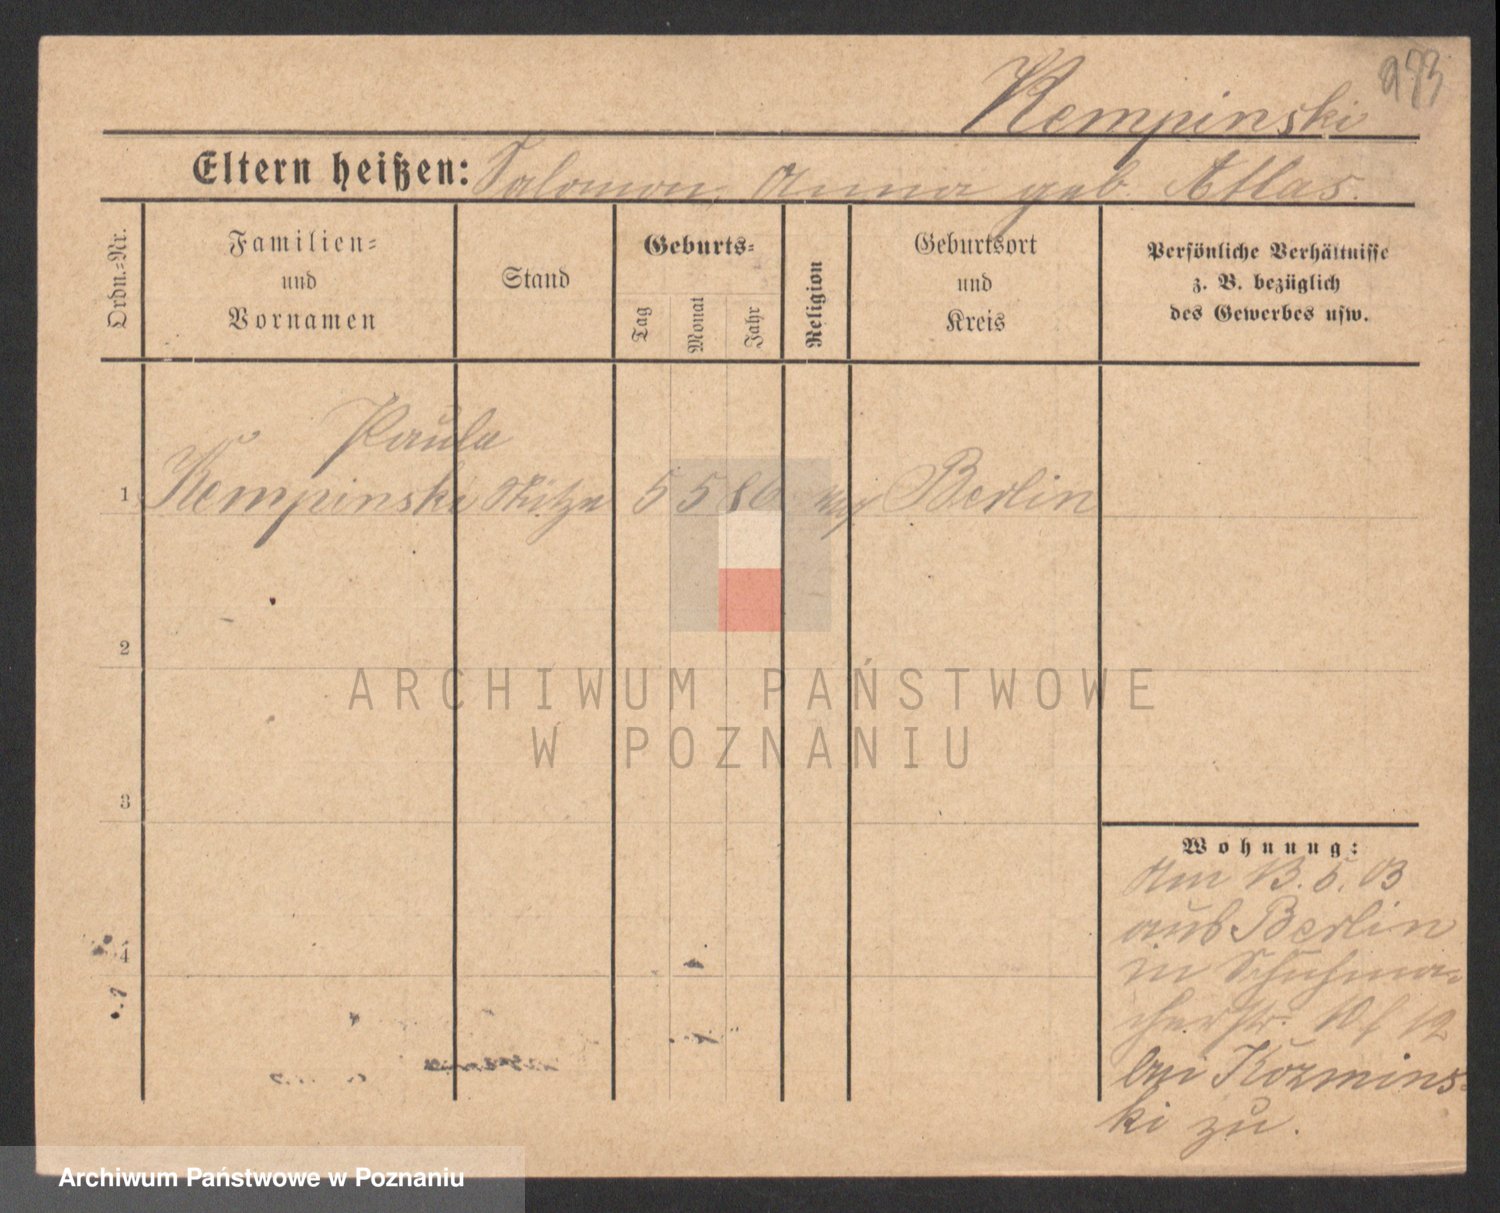 Kempinski
Eltern heißen: Salomon, Anna geb. Atlas.
Ordn.=Nr.
Familien=
und
Vornamen
Stand
Geburts=
Tag
Monat
Jahr
Religion
Geburtsort
und
Kreis
Persönliche Verhältnisse
z. B. bezüglich
des Gewerbes usw.
Paula
1 Kempinski Stütze 5 5 86 Berlin
2
3
4
Wohnung:
Am 13.5.03
aus Berlin
in Schuhma=
cherstr.
bei Kozmins=
ki zu.
ARCHIWUM PAŃSTWOWE
W POZNANIU
Archiwum Państwowe w Poznaniu